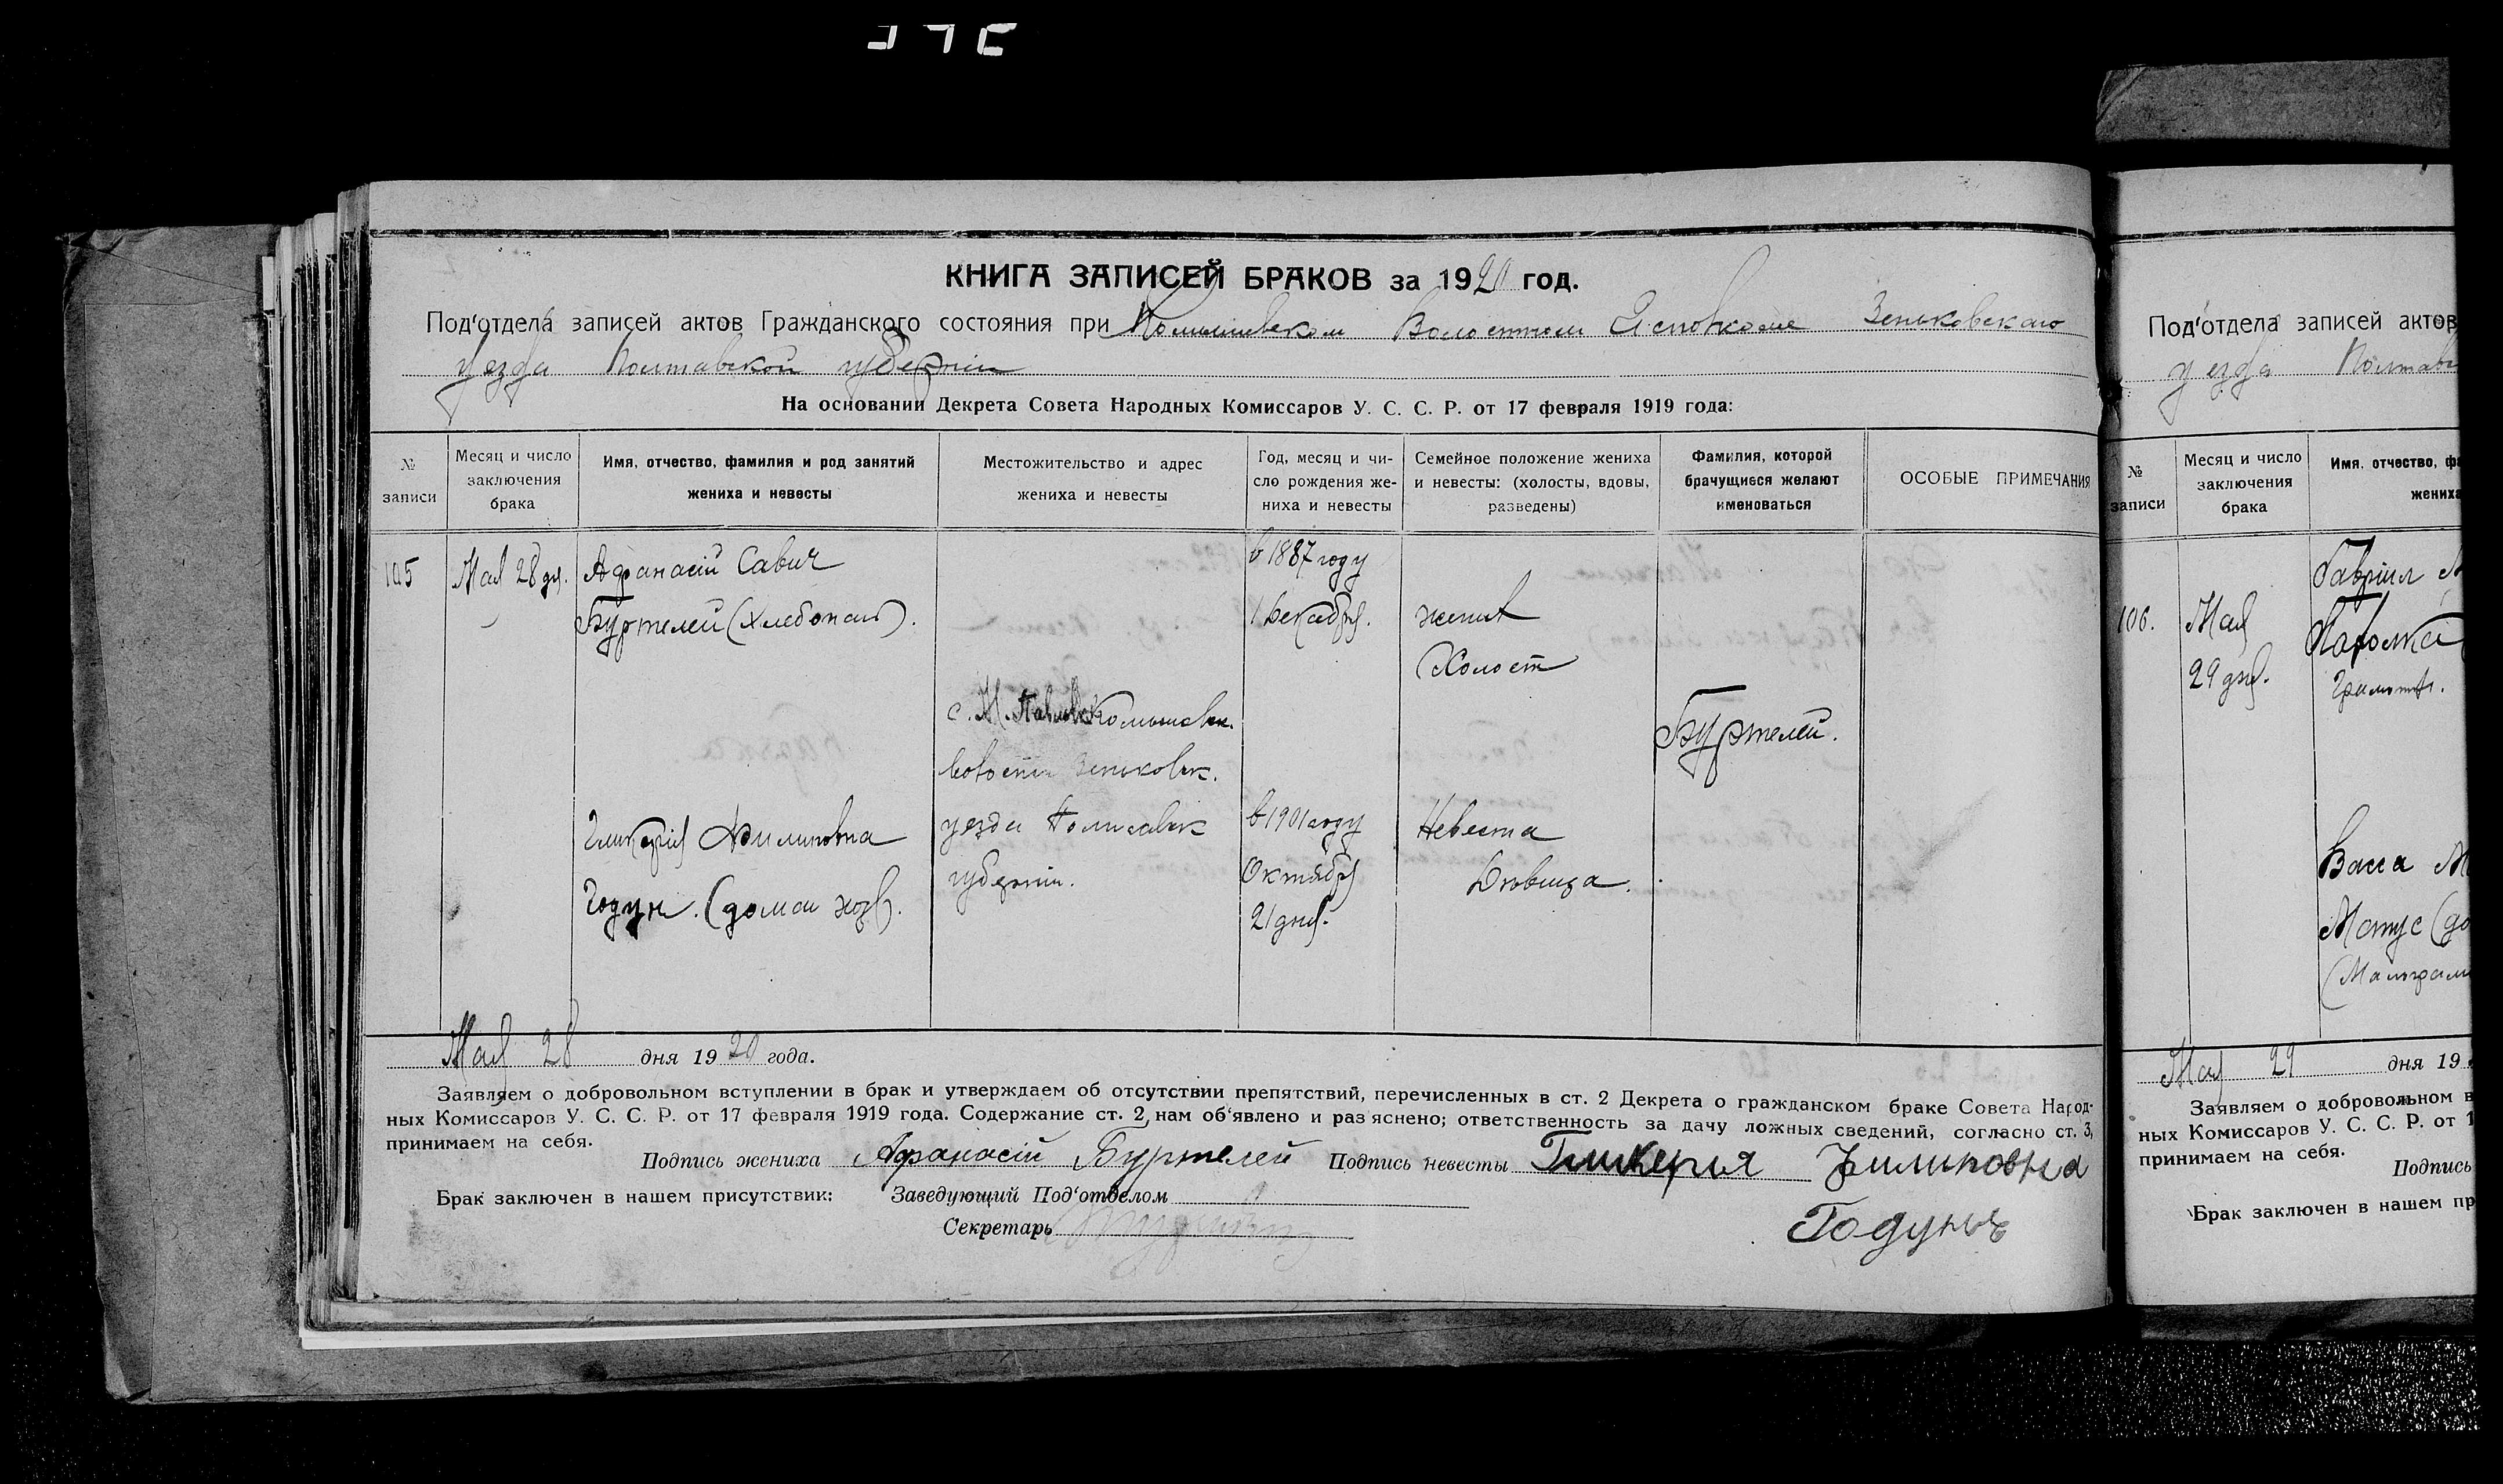 КНИГА ЗАПИСЕЙ БРАКОВ за 1920 год.
Под'отдела записей актов Гражданского состояния при Комышевском Волостном Исповкоме Зеньковского
уезда Полтавской губернии
На основании Декрета Совета Народных Комиссаров У. С. С. Р. от 17 февраля 1919 года:
№ записи
Месяц и число заключения брака
Имя, отчество, фамилия и род занятий жениха и невесты
Местожительство и адрес жениха и невесты
Год, месяц и чи- сло рождения же- ниха и невесты
Семейное положение жениха и невесты: (холосты, вдовы, разведены)
Фамилия, которой брачущиеся желают именоваться
ОСОБЫЕ ПРИМЕЧАНИЯ
105
Мая 28 дня.
Афанасій Савич
Буртелей (хлебопаш).
Гликерія Филиповна
Годун. (домаш хозя).
с. М. Павловк Комышевск.
волости Зеньковск.
уезда Полтавск
губернии.
в 1887 году
1 Декабря.
в 1901 году
Октября
21 дня.
жених
Холост
Невеста
Девица.
Буртелей.
Мая 28 дня 1920 года.
Заявляем о добровольном вступлении в брак и утверждаем об отсутствии препятствий, перечисленных в ст. 2 Декрета о гражданском браке Совета Народ-
ных Комиссаров У. С. С. Р. от 17 февраля 1919 года. Содержание ст. 2, нам об'явлено и раз'яснено; ответственность за дачу ложных сведений, согласно ст. 3,
принимаем на себя.
Подпись жениха Афанасій Буртелей Подпись невесты Гликерия Филиповна
Годунъ
Брак заключен в нашем присутствии: Заведующий Под'отделом
Секретарь
Под'отдела записей актов
уезда Полтавс
№ записи
Месяц и число заключения брака
Имя. отчество, фа
жениха
106.
Мая
29 дня.
Гавріил М
Грамотн.
Васса М
Матус (до
(Малограм
Мая 29 дня 19
Заявляем о добровольном в
ных Комиссаров У. С. С. Р. от 1
принимаем на себя.
Подпись
Брак заключен в нашем пр